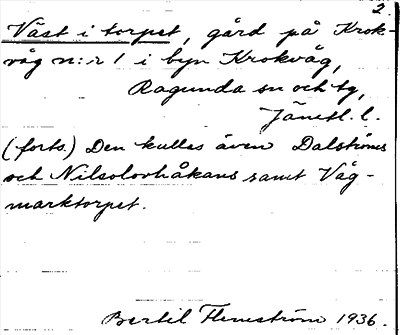 2.
Väst i torpet, gård på Krok-
våg n:r 1 i byn Krokvåg,
Ragunda sn och tg,
Jämtl. l.
(forts.) Den kallas även Dalströms
och Nilsolovhåkans samt Våg-
marktorpet.
Bertil Flemström 1936.